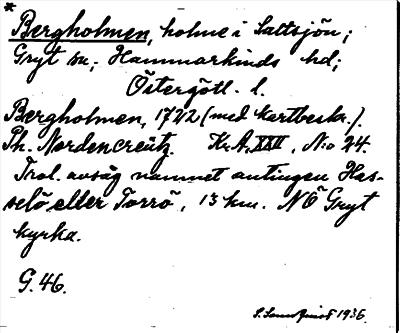 * Bergholmen, holme i Saltsjön;
Gryt sn; Hammarkinds hd;
Östergötl. l.
Bergholmen, 1722 (med kartbeskr.).
Ph. Nordencreütz. Kr.A, XXII, N:o 24.
Trol. avsåg namnet antingen Has-
selö eller Torrö, 13 km. NÖ Gryt
kyrka.
G. 46.
1936.